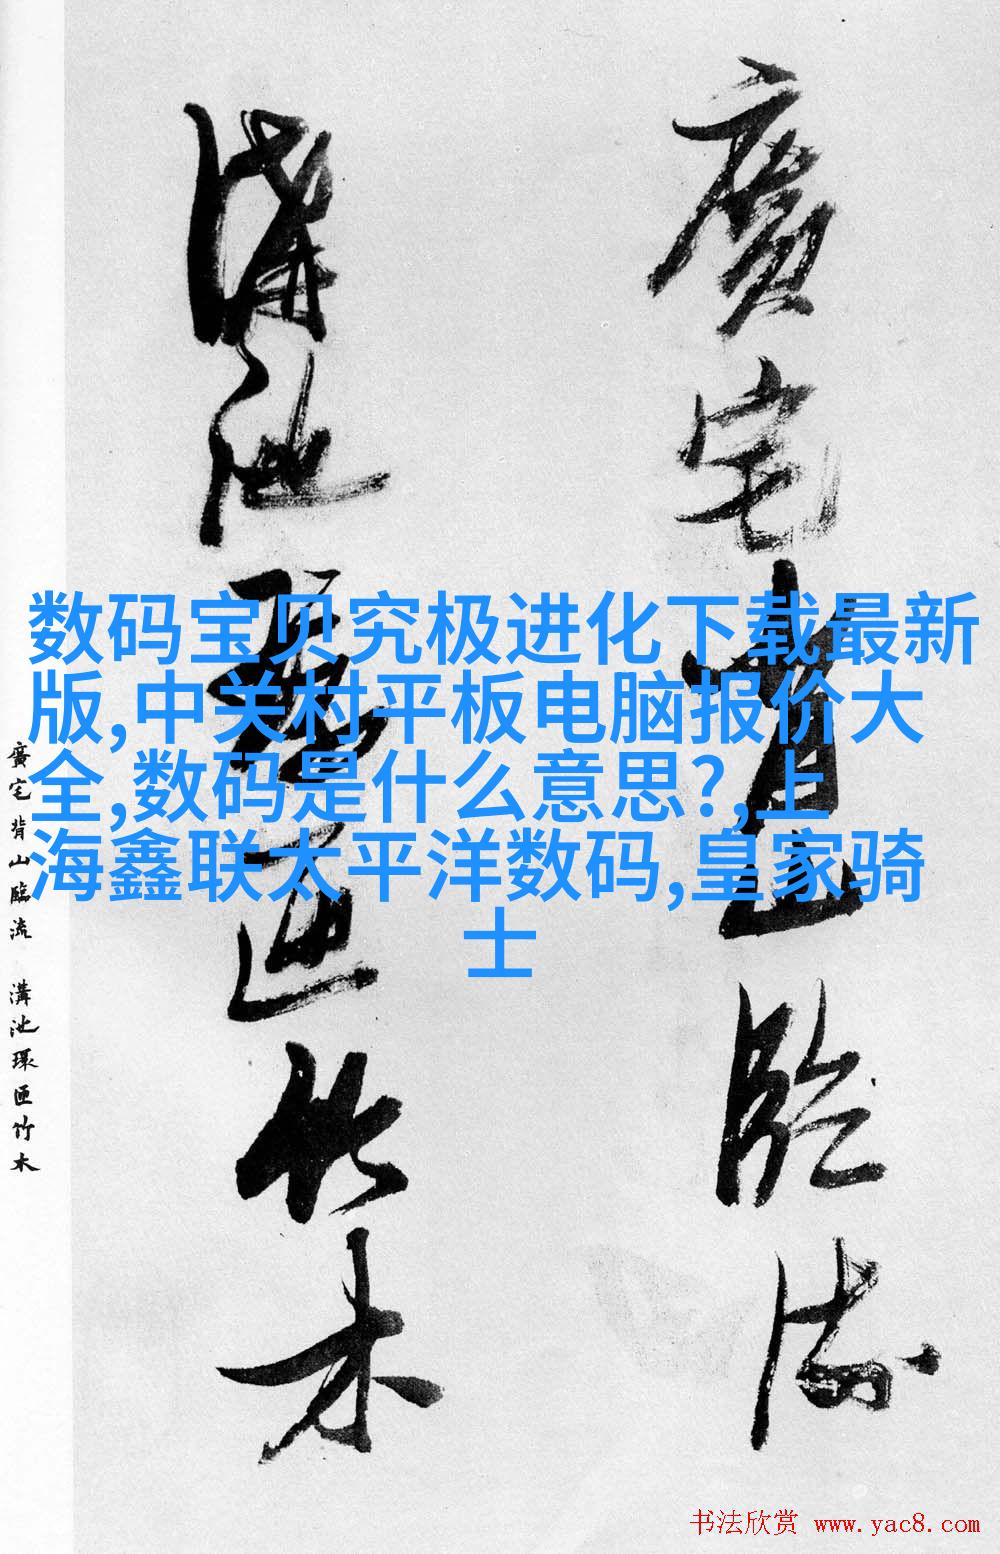 廣宅背山臨流
溝池環匝竹木
数码宝贝究极进化下载最新
版,中关村平板电脑报价大
全,数码是什么意思?,上
海鑫联太平洋数码,皇家骑
士
廣宅背山臨流 溝池環匝竹木
书法欣赏 www.yac8.com